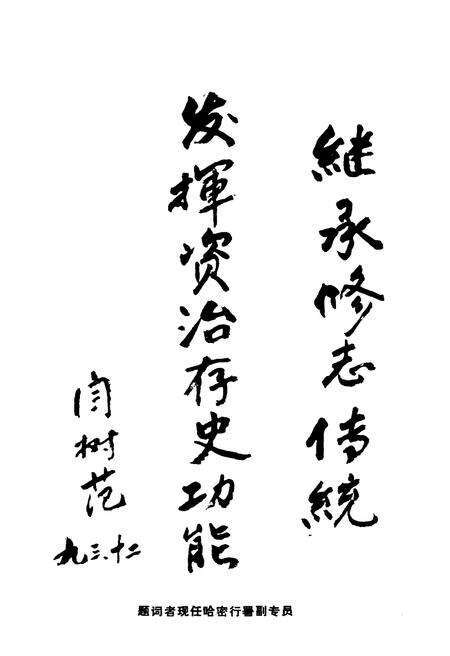 継承修志傳統
发揮资治存史功能
闫树范
九三.十二
题词者现任哈密行署副专员